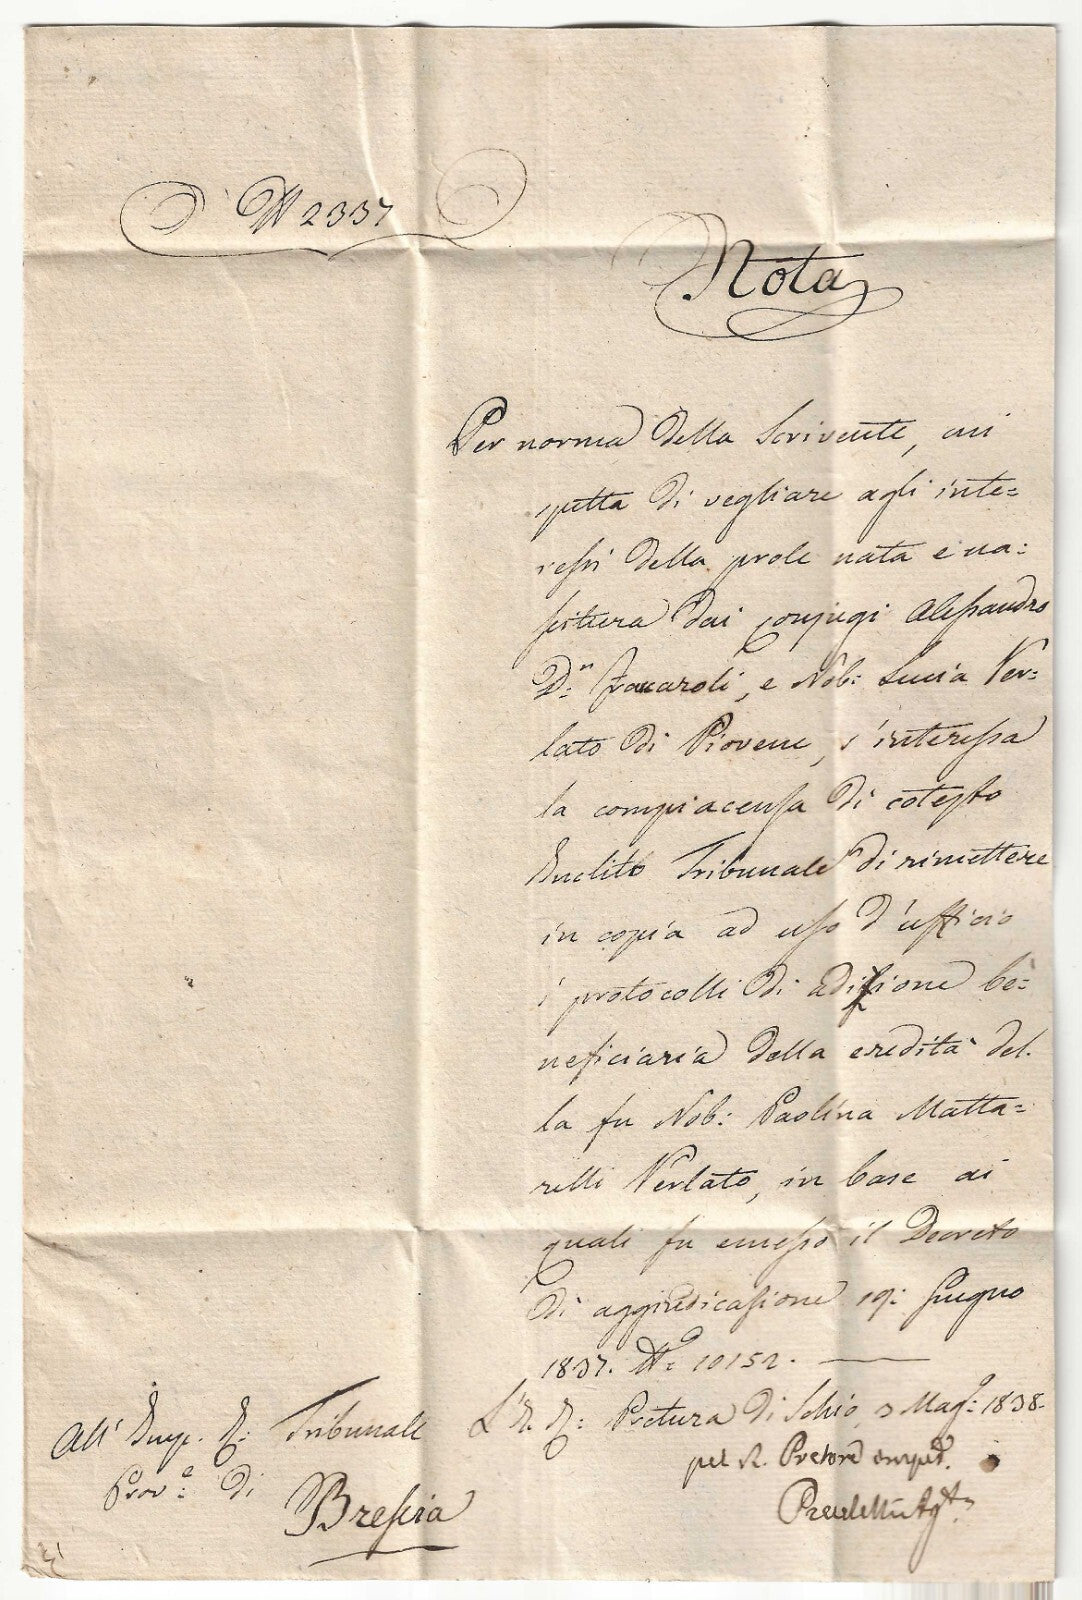 N 2337
Nota
Per norma della Scrivente, cui
spetta di vegliare agli inte=
ressi della prole nata e na:
scitura dai Conjugi Alessandro
D.n Zaccaroli, e Nob: Lucia Ver=
lato di Piovene, s'interessa
la compiacenza di cotesto
Inclito Tribunale di rimettere
in copia ad uso d'ufficio
i protocolli di adizione be=
neficiaria della eredità del.
la fu Nob: Paolina Matta=
relli Verlato, in base ai
quali fu emesso il Decreto
di aggiudicazione 19: Giugno
1837. N.o 10152.
L'I. R: Pretura di Schio, 3 Mag.o: 1838.
pel R. Pretore imped.
All' Imp. R: Tribunale
Prov.e: di
Brescia